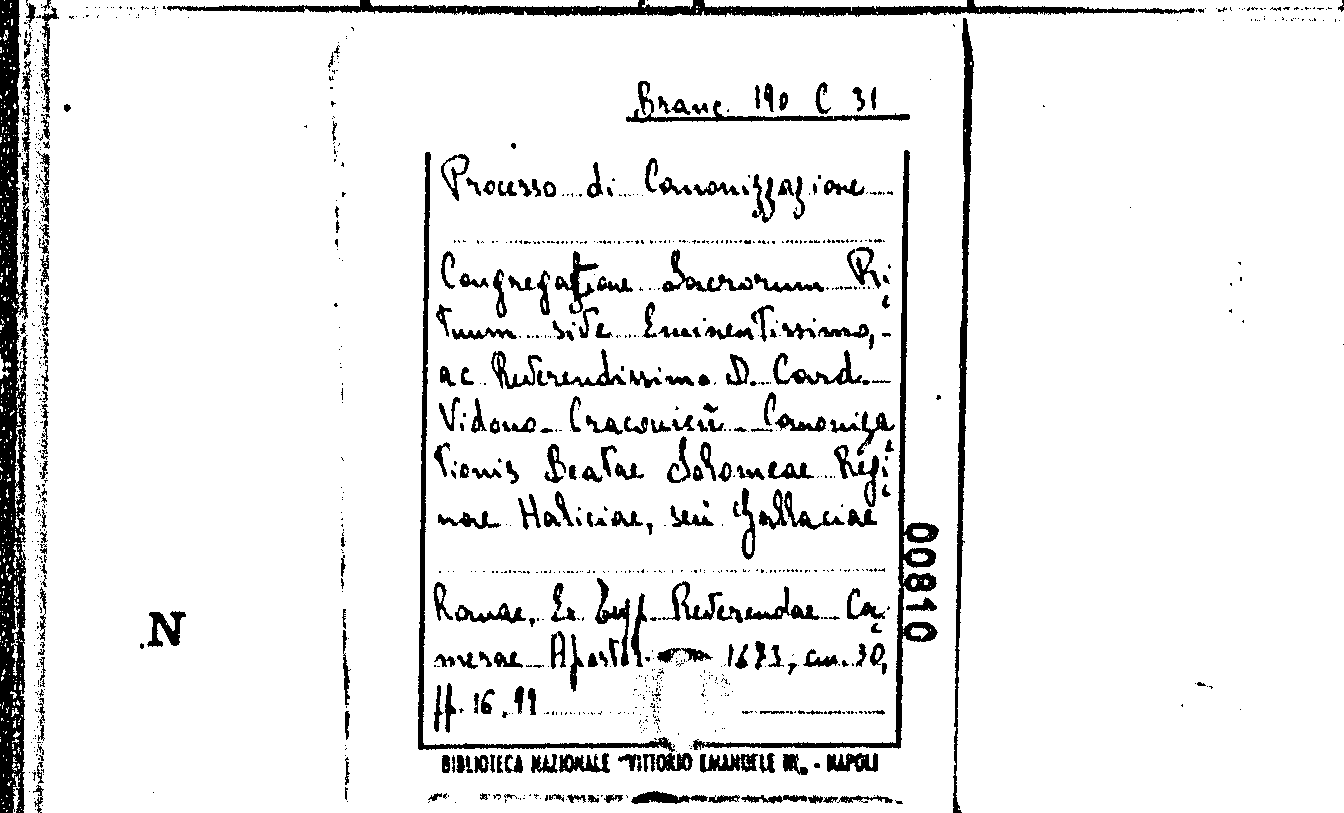 Branc. 190 C 31
Processo di Canonizzazione
Congregatione Sacrorum Ri-
tuum sive Eminentissimo,
ac Reverendissimo D. Card.
Vidono Cracovień Canoniza-
tionis Beatae Salomeae Regi-
nae Haliciae, seu Gallaciae
Romae, Ex Typ. Reverendae Ca-
merae Apostol. 1673, cm. 30,
pp. 16, 99
00810
N
BIBLIOTECA NAZIONALE "VITTORIO EMANUELE III" - NAPOLI